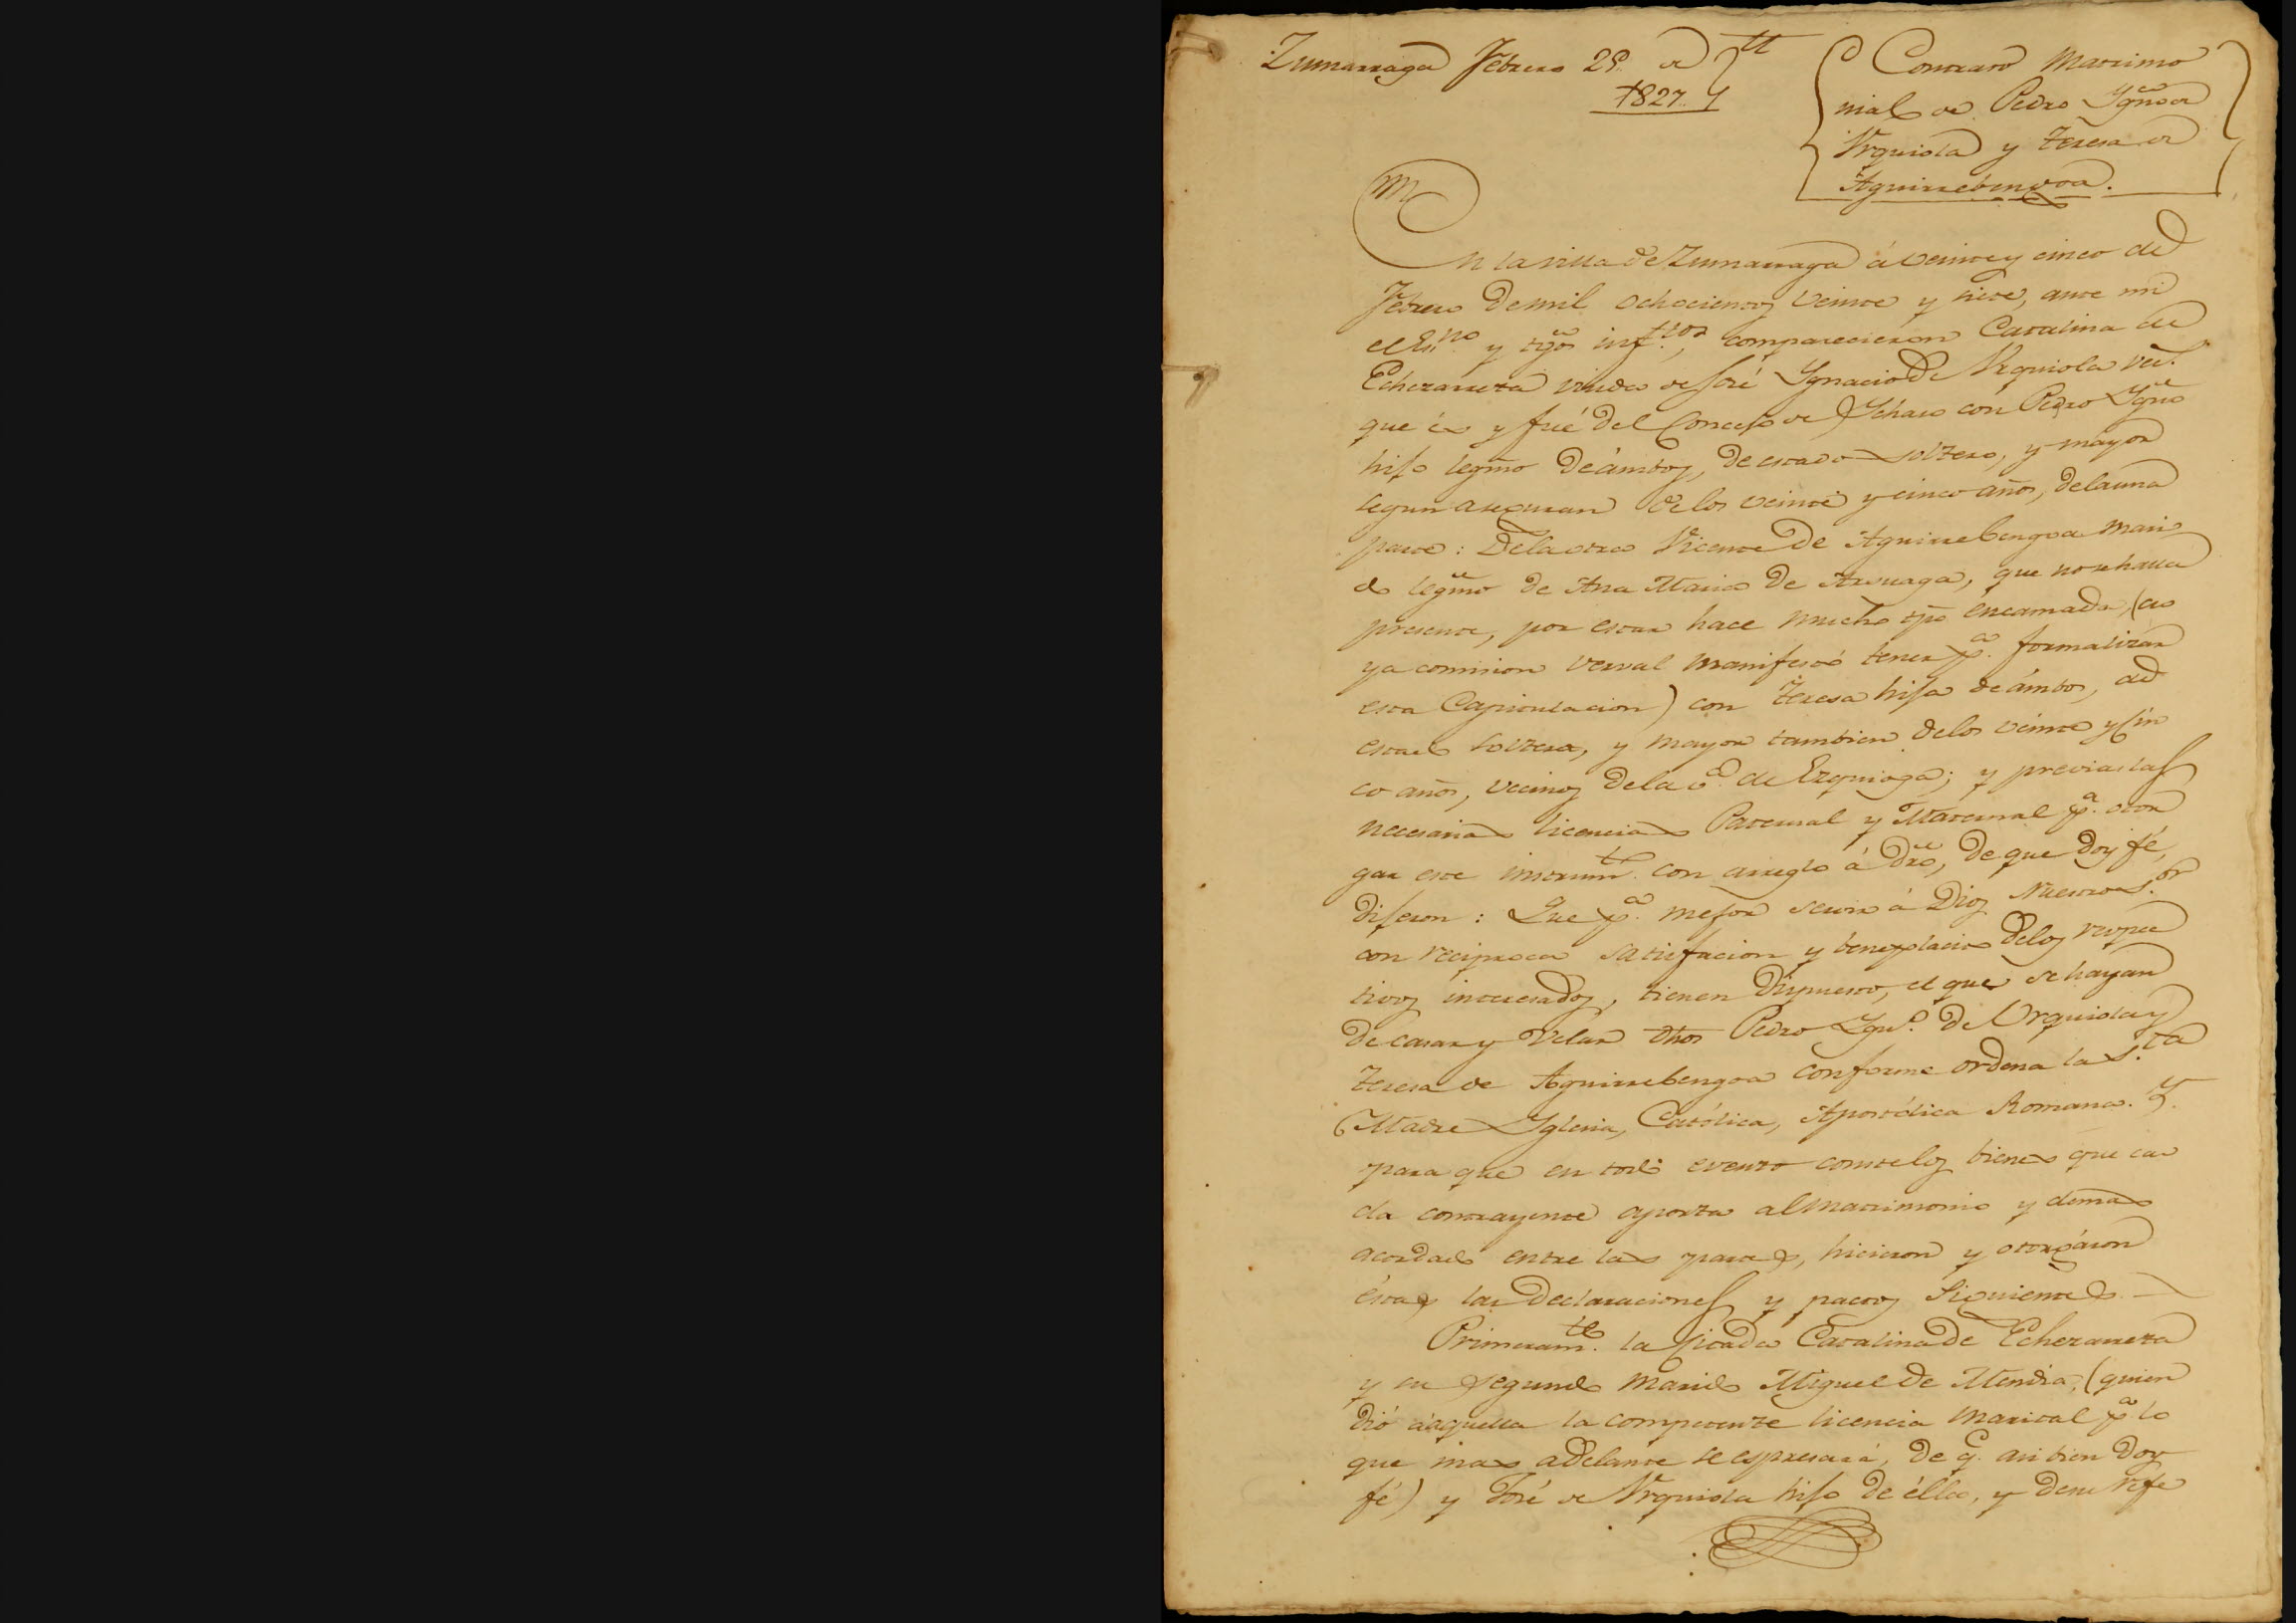 Zumarraga Febrero 25 de
1827
Contrato Matrimo
nial de Pedro Ygnº de
Urquiola y Teresa de
Aguirrebengoa.
En la villa de Zumarraga á veinte y cinco de
Febrero de mil ochocientos veinte y siete, ante mi
el Esnº y tgos inftos, comparecieron Catalina de
Echezarreta viuda de José Ygnacio de Urquiola vec.
que és y fué del Concejo de Ychaso con Pedro Ygnº
hijo legmo de ámbos, de estado soltero, y mayor
segun aseguran de los veinte y cinco años, de la una
parte: De la otra Vicente de Aguirrebengoa mari
do legmo de Ana Maria de Arsuaga, que no se halla
presente, por estar hace mucho tpo encamada, (cu
ya comision verval manifestó tener pª. formalizar
esta Capitulacion) con Teresa hija de ámbos, de
estado soltera, y mayor tambien de los veinte y cin
co años, vecinos de la vª. de Ezquioga; y previas las
necesarias licencias Paternal y Maternal pª. otor
gar este instrumto. con arreglo á dro, de que doy fé,
dijeron: Que pª. mejor servir á Dios Nuestro Sor.
con reciproca satisfacion y beneplacito de los respec
tivos interesados, tienen dispuesto, el que se hayan
de casar y velar dhos Pedro Ygnº. de Urquiola y
Teresa de Aguirrebengoa conforme ordena la Sta.
Madre Yglesia, Católica, Apostólica Romana. Y.
para que en todo evento conste los bienes que ca
da contrayente aporta al matrimonio y demas
acordado entre las partes, hicieron y otorgáron
éstas las declaraciones y pactos siguientes.
Primeramte. la citada Catalina de Echezarreta
y su segundo marido Miguel de Mendia, (quien
dió á aquella la competente licencia marital pª lo
que mas adelante se espresará, de q. asi bien doy
fé) y José de Urquiola hijo de élla, y de su refe